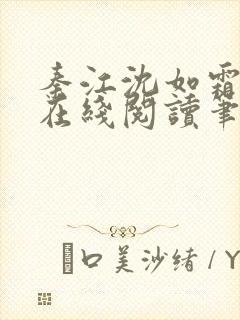 秦江沈如霜
在綫閱讀筆
口美沙绪 / Y